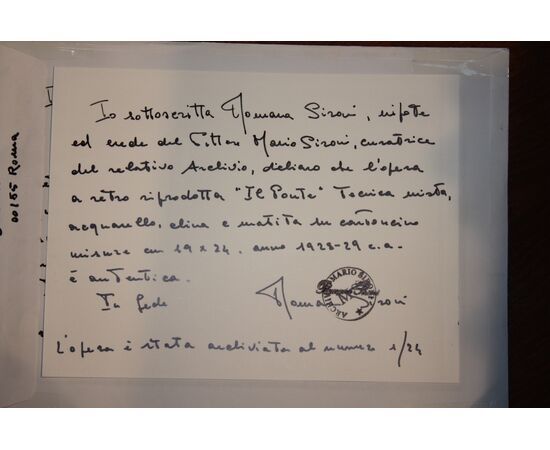 Io sottoscritta Romana Sironi, nipote
ed erede del Pittore Mario Sironi, curatrice
del relativo Archivio, dichiaro che l'opera
a retro riprodotta "Il Ponte" Tecnica mista,
acquarello, china e matita su cartoncino
misure cm 19 x 24. anno 1928-29 c.a.
è autentica.
In fede
Romana Sironi
ARCHIVIO MARIO SIRONI
L'opera è stata archiviata al numero 1/24
00155 Roma